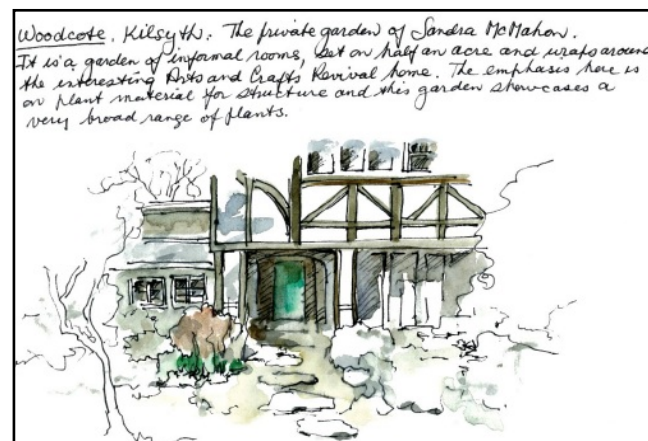 Woodcote, Kilsyth: The private garden of Sandra McMahon.
It is a garden of informal rooms, set on half an acre and wraps around
the interesting Arts and Crafts Revival home. The emphasis here is
on plant material for structure and this garden showcases a
very broad range of plants.